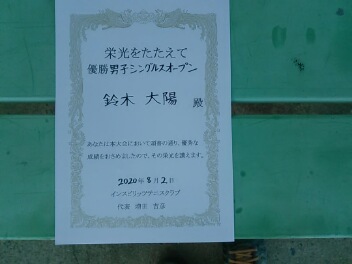 栄光をたたえて
優勝 男子シングルスオープン
鈴木 大陽 殿
あなたは本大会において頭書の通り、優秀な
成績をおさめましたので、その栄光を讃えます。
2020年8月2日
インスピリッツテニスクラブ
代表